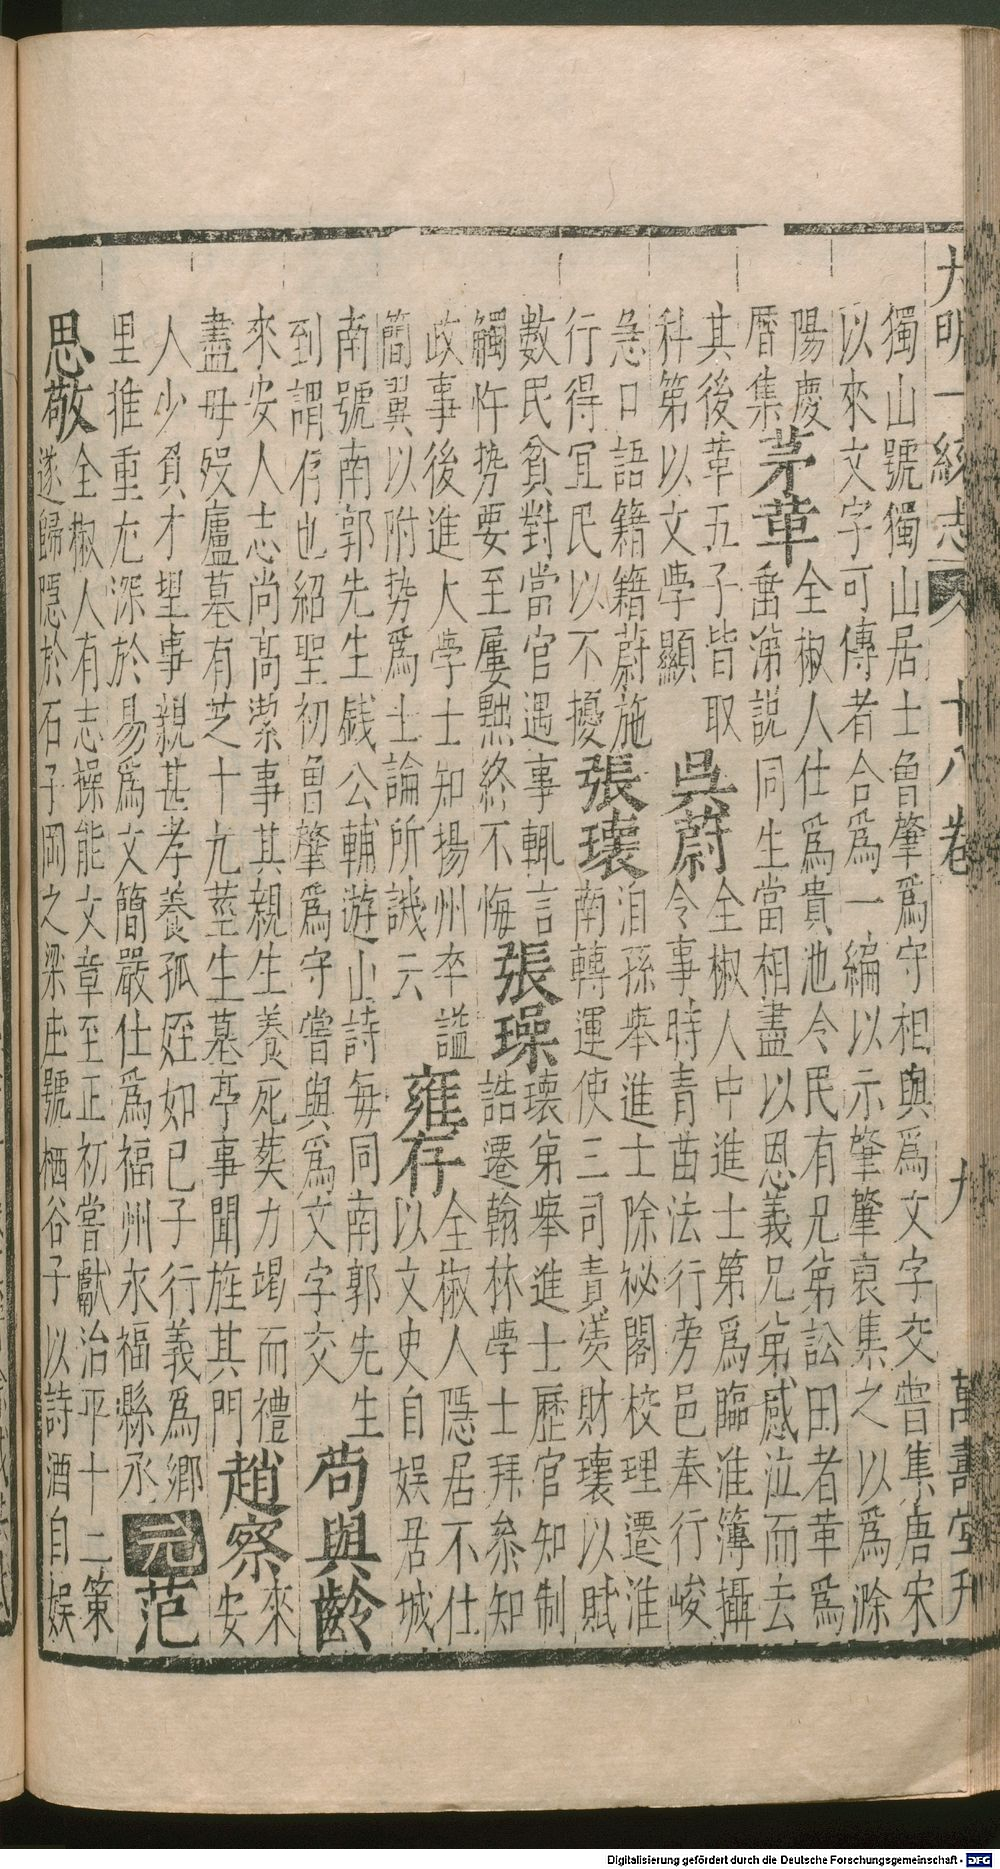 大明一統志 十八卷 九 萬壽堂刊
獨山號獨山居士魯肇為守相與為文字交嘗集唐宋
以來文字可傳者合為一編以示肇肇裒集之以為滁
陽慶
曆集
茅革
全椒人仕為貴池令民有兄弟訟田者革為
耑弟説同生當相盡以恩義兄弟感泣而去
其後革五子皆取
科第以文學顯
吳蔚
全椒人中進士第為臨淮簿攝
令事時青苗法行旁邑奉行峻
急口語籍籍蔚施
行得宜民以不擾
張瓌
洎孫舉進士除祕閣校理遷淮
南轉運使三司責羨財瓌以賦
數民貧對當官遇事輒言
觸忤势要至屢黜終不悔
張璪
瓌弟舉進士歷官知制
誥遷翰林學士拜叅知
政事後進大學士知揚州卒謚
簡翼以附势為士論所譏云
雍存
全椒人隱居不仕
以文史自娱居城
南號南郭先生錢公輔遊山詩每同南郭先生
到謂存也紹聖初魯肇為守嘗與為文字交
苟與齡
來安人志尚高潔事其親生養死葬力竭而禮
盡母歿廬墓有芝十九莖生墓亭事聞旌其門
趙察
來
安
人少貧才望事親甚孝養孤姪如已子行義為鄉
里推重尤深於易為文簡嚴仕為福州永福縣丞
元 范
思敬
全椒人有志操能文章至正初嘗獻治平十二策
遂歸隱於石子岡之梁庄號栖谷子以詩酒自娱
Digitalisierung gefördert durch die Deutsche Forschungsgemeinschaft - DFG